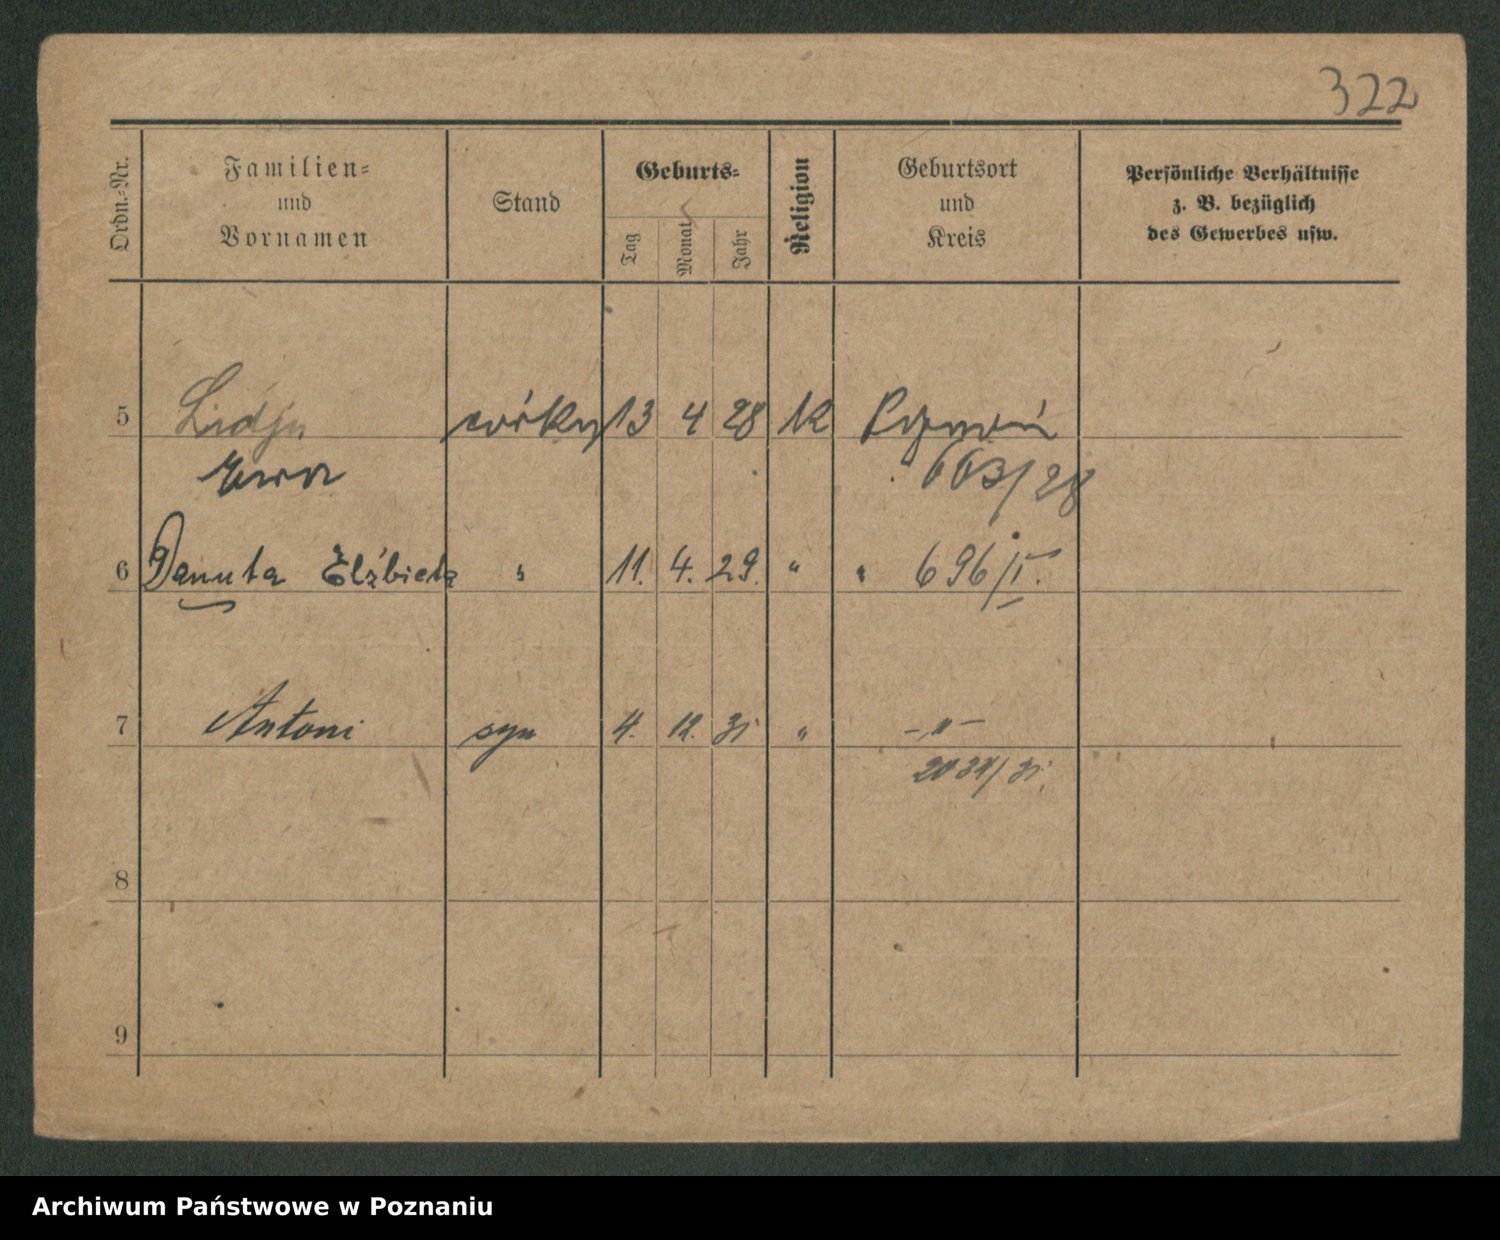 322
Ordn.-Nr.
Familien-
und
Vornamen
Stand
Geburts-
Tag
Monat
Jahr
Religion
Geburtsort
und
Kreis
Persönliche Verhältnisse
z. B. bezüglich
des Gewerbes usw.
5 Lidja córka 13 4 28 K Poznań
Ewa 663/28
6 Danuta Elżbieta " 11. 4. 29. " " 696/I.
7 Antoni syn 4. 12. 31 " -"-
2034/31.
8
9
Archiwum Państwowe w Poznaniu